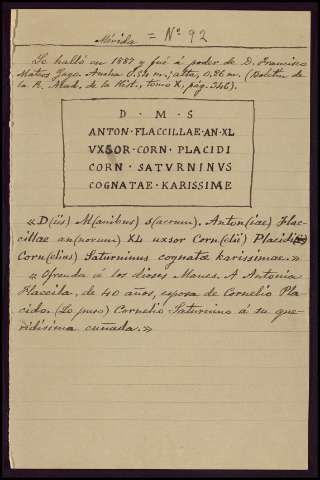 Mérida = Nº 92
Se halló en 1887 y fué á poder de D. Francisco
Mateos Gago. Ancha 0,54 m.; alta, 0,26 m. (Boletín de
la R. Acad. de la Hist., tomo X, pág. 346).
D · M · S
ANTON · FLACCILLAE · AN · XL
VXSOR · CORN · PLACIDI
CORN · SATVRNINVS
COGNATAE · KARISSIME
«D(iis) M(anibus) s(acrum). Anton(iae) Flac-
cillae an(norum) XL uxsor Corn(elii) Placidi
Corn(elius) Saturninus cognatæ karissimae.»
«Ofrenda á los dioses Manes. A Antonia
Flaccila, de 40 años, esposa de Cornelio Pla-
cido. (Lo puso) Cornelio Saturnino á su que-
ridísima cuñada.»